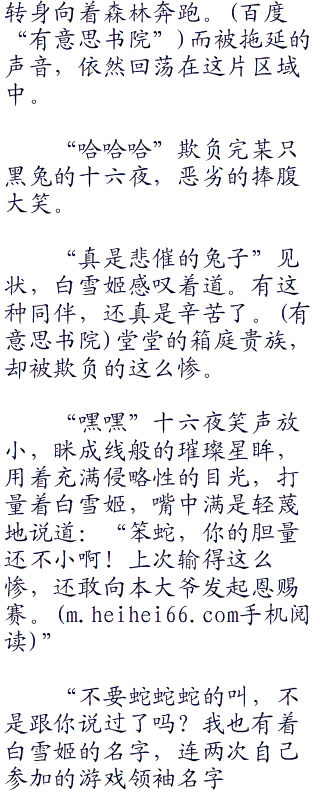 转身向着森林奔跑。(百度
“有意思书院”)而被拖延的
声音，依然回荡在这片区域
中。
“哈哈哈”欺负完某只
黑兔的十六夜，恶劣的捧腹
大笑。
“真是悲催的兔子”见
状，白雪姬感叹着道。有这
种同伴，还真是辛苦了。(有
意思书院)堂堂的箱庭贵族，
却被欺负的这么惨。
“嘿嘿”十六夜笑声放
小，眯成线般的璀璨星眸，
用着充满侵略性的目光，打
量着白雪姬，嘴中满是轻蔑
地说道：“笨蛇，你的胆量
还不小啊！上次输得这么
惨，还敢向本大爷发起恩赐
赛。(m.heihei66.com手机阅
读)”
“不要蛇蛇蛇的叫，不
是跟你说过了吗？我也有着
白雪姬的名字，连两次自己
参加的游戏领袖名字